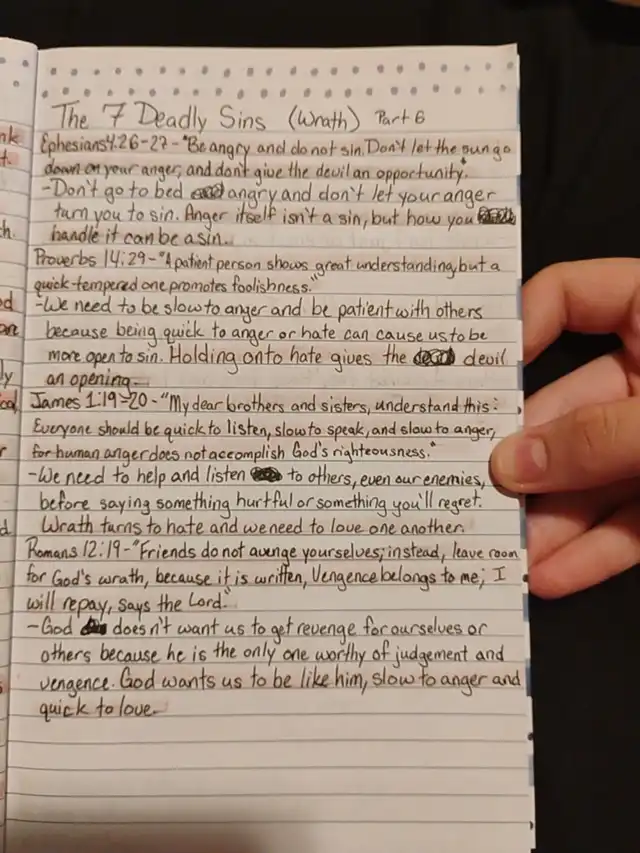 The 7 Deadly Sins (Wrath) Part 6
Ephesians 4:26-27-"Be angry and do not sin. Don't let the sun go
down on your anger, and don't give the devil an opportunity."
-Don't go to bed angry and don't let your anger
turn you to sin. Anger itself isn't a sin, but how you
handle it can be a sin.
Proverbs 14:29-"A patient person shows great understanding, but a
quick-tempered one promotes foolishness."
-We need to be slow to anger and be patient with others
because being quick to anger or hate can cause us to be
more open to sin. Holding onto hate gives the devil
an opening.
James 1:19-20-"My dear brothers and sisters, understand this:
Everyone should be quick to listen, slow to speak, and slow to anger,
for human anger does not accomplish God's righteousness."
-We need to help and listen to others, even our enemies,
before saying something hurtful or something you'll regret.
Wrath turns to hate and we need to love one another.
Romans 12:19-"Friends do not avenge yourselves; instead, leave room
for God's wrath, because it is written, Vengence belongs to me; I
will repay, says the Lord."
-God doesn't want us to get revenge for ourselves or
others because he is the only one worthy of judgement and
vengence. God wants us to be like him, slow to anger and
quick to love.